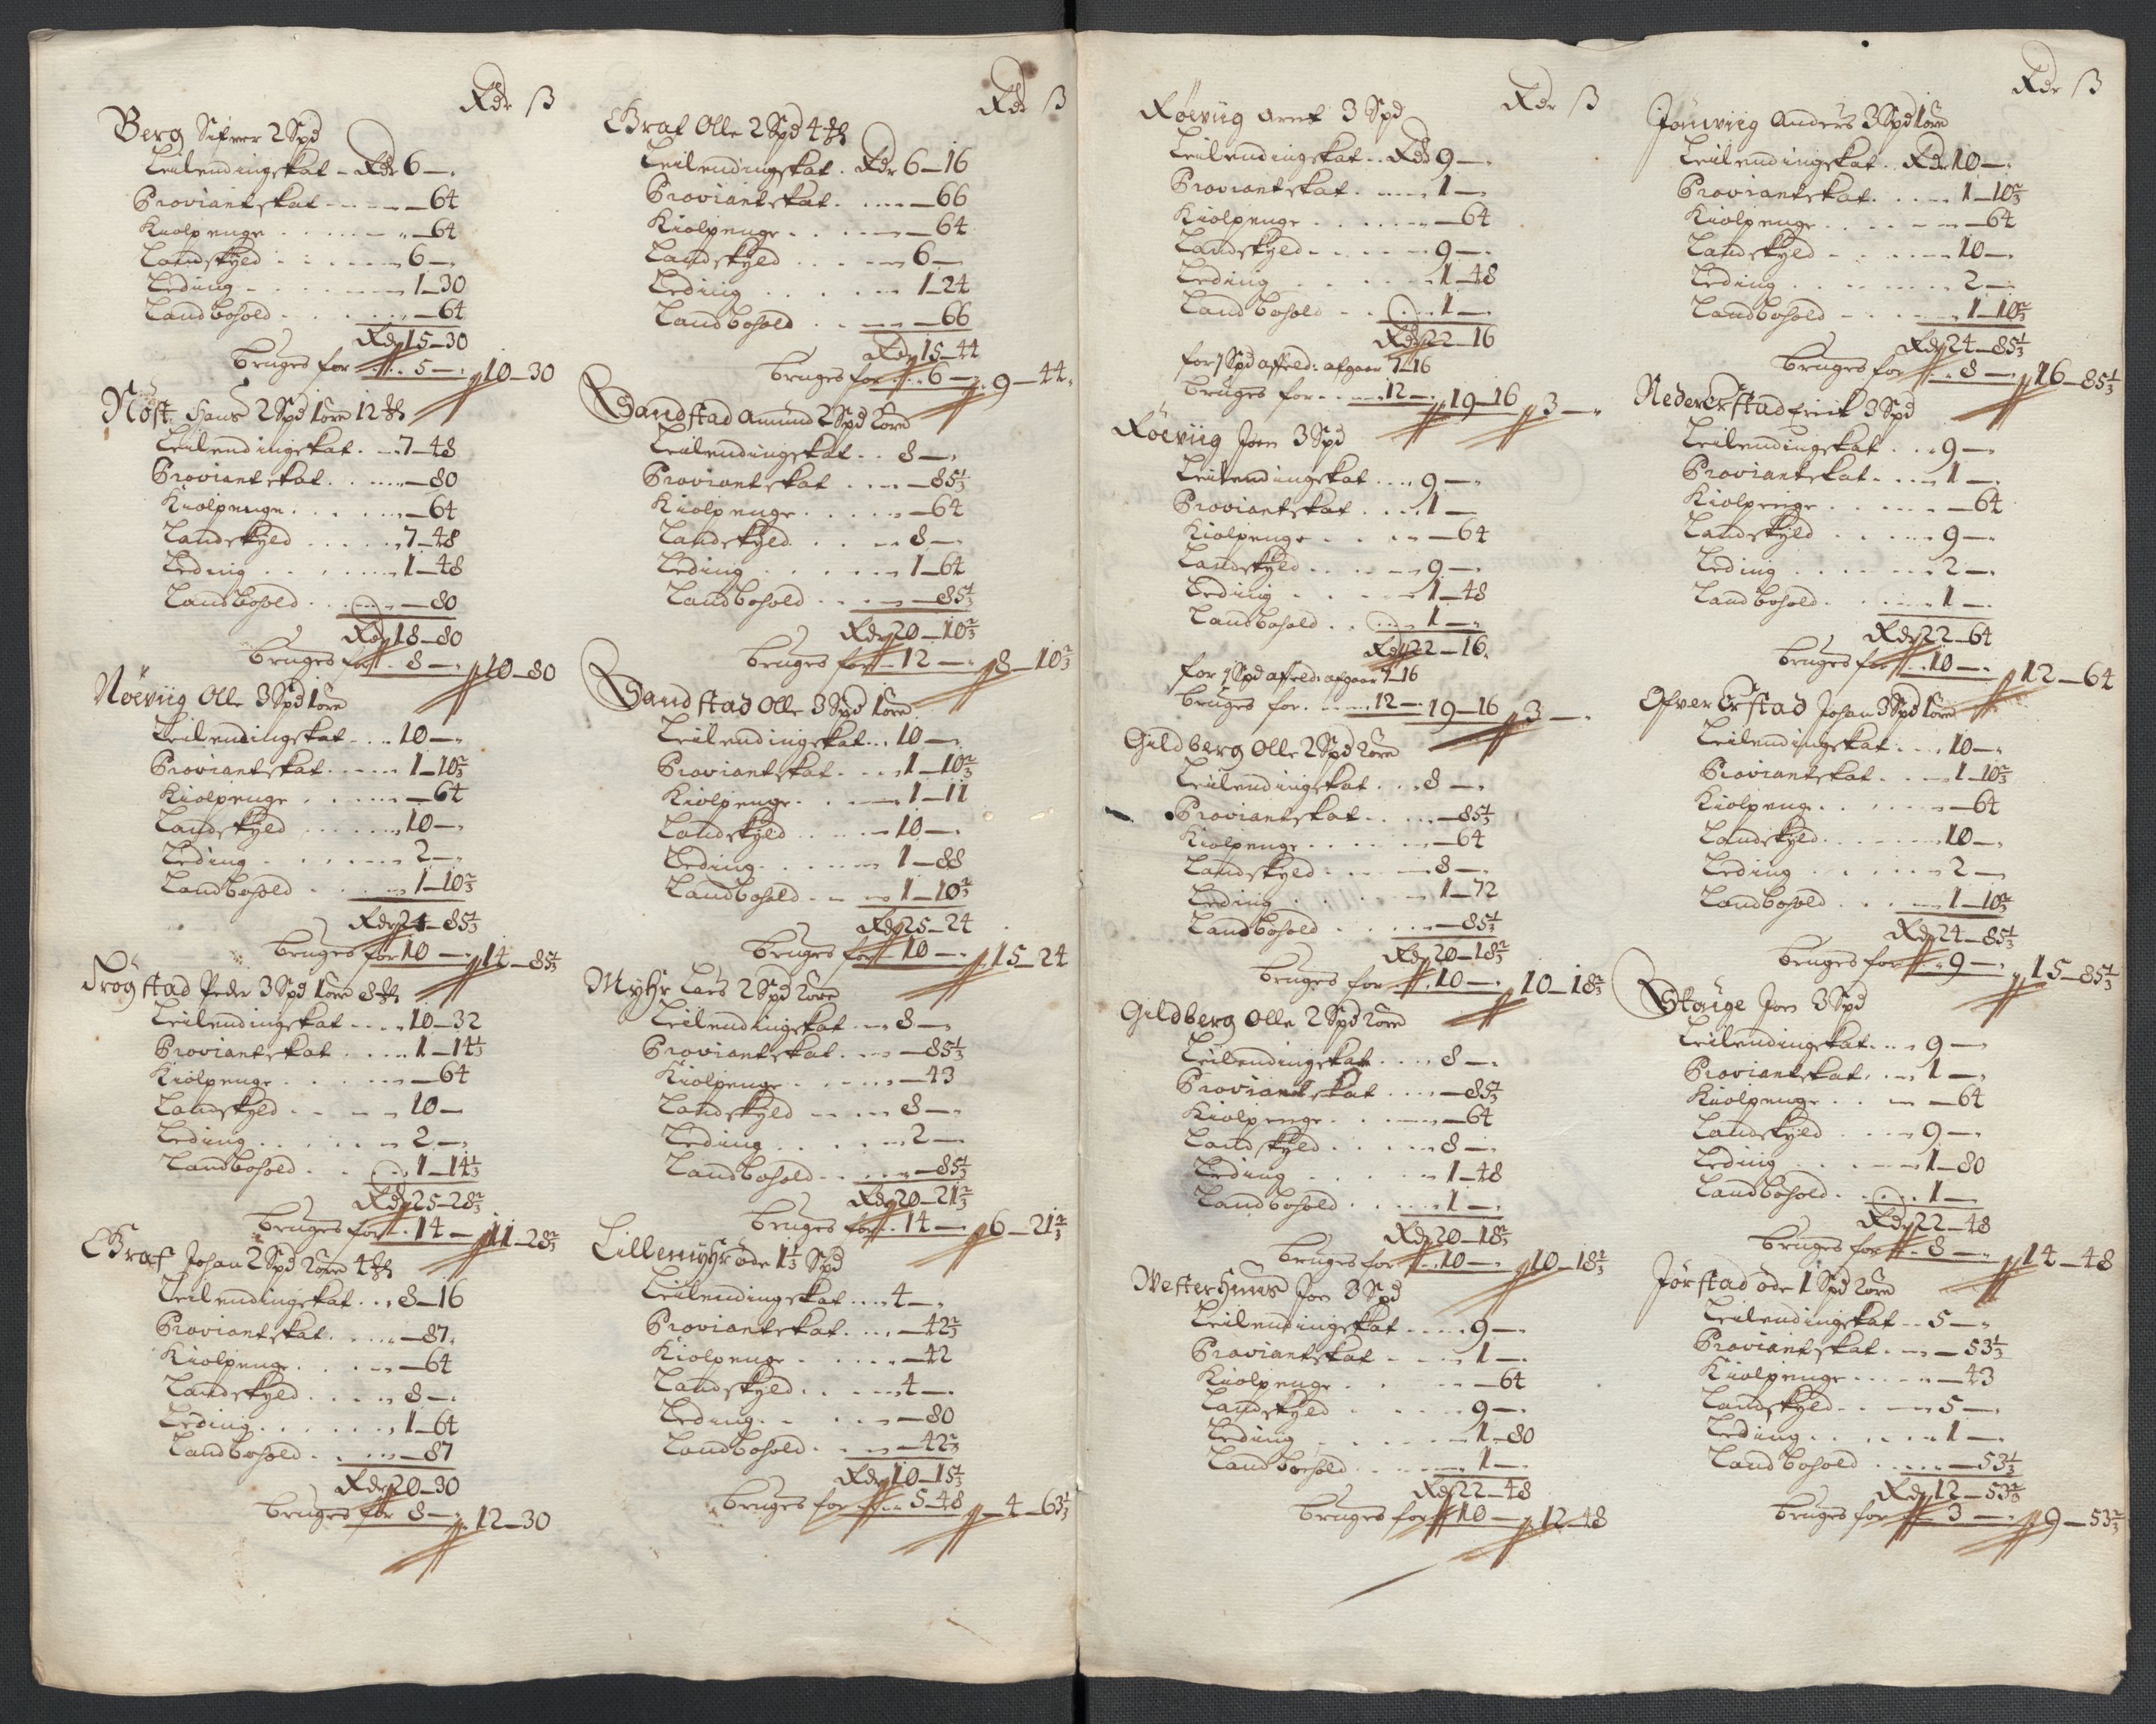 Rdr ß
Berg Sifver 2 Spd
Leilendingskat - Rdr 6 —
Proviantskat — 64
Kiolpenge — 64
Landskyld 6 —
Leding 1 — 30
Landbohold — 64
Rdr 15 — 30
bruges for 5 — 10 — 30
Nöst Hans 2 Spd 1 öre 12 ℔
Leilendingskat 7 — 48
Proviantskat — 80
Kiolpenge — 64
Landskyld 7 — 48
Leding 1 — 48
Landbohold — 80
Rdr 18 — 80
bruges for 8 — 10 — 80
Nöeviig Olle 3 Spd 1 öre
Leilendingskat 10 —
Proviantskat 1 — 10⅔
Kiolpenge — 64
Landskyld 10 —
Leding 2 —
Landbohold 1 — 10⅔
Rdr 24 — 85⅓
bruges for 10 — 14 — 85⅓
Frögstad Peder 3 Spd 1 öre 8 ℔
Leilendingskat 10 — 32
Proviantskat 1 — 14⅓
Kiolpenge — 64
Landskyld 10 —
Leding 2 —
Landbohold 1 — 14⅓
Rdr 25 — 28⅔
bruges for 14 — 11 — 28⅔
Graf Johan 2 Spd 2 öre 4 ℔
Leilendingskat 8 — 16
Proviantskat — 87
Kiolpenge — 64
Landskyld 8 —
Leding 1 — 64
Landbohold — 87
Rdr 20 — 30
bruges for 8 — 12 — 30
Rdr ß
Graf Olle 2 Spd 4 ℔
Leilendingskat Rdr 6 — 16
Proviantskat — 66
Kiolpenge — 64
Landskyld 6 —
Leding 1 — 24
Landbohold — 66
Rdr 15 — 44
bruges for 6 — 9 — 44
Sandstad Amund 2 Spd 2 öre
Leilendingskat 8 —
Proviantskat — 85⅓
Kiolpenge — 64
Landskyld 8 —
Leding 1 — 64
Landbohold — 85⅓
Rdr 20 — 10⅔
bruges for 12 — 8 — 10⅔
Sandstad Olle 3 Spd 1 öre
Leilendingskat 10 —
Proviantskat 1 — 10⅔
Kiolpenge 1 — 11
Landskyld 10 —
Leding 1 — 88
Landbohold 1 — 10⅔
Rdr 25 — 24
bruges for 10 — 15 — 24
Myhr Lars 2 Spd 2 öre
Leilendingskat 8 —
Proviantskat — 85⅓
Kiolpenge — 43
Landskyld 8 —
Leding 2 —
Landbohold — 85⅓
Rdr 20 — 21⅔
bruges for 14 — 6 — 21⅔
Lillemyhr öde 1⅓ Spd
Leilendingskat 4 —
Proviantskat — 42⅔
Kiolpenge — 42
Landskyld 4 —
Leding — 80
Landbohold — 42⅔
Rdr 10 — 15⅓
bruges for 5 — 48 — 4 — 63⅓
Rdr ß
Röeviig Arent 3 Spd
Leilendingskat Rdr 9 —
Proviantskat 1 —
Kiolpenge — 64
Landskyld 9 —
Leding 1 — 48
Landbohold 1 —
Rdr 22 — 16
for 1 Spd affeld: afgaar 7 — 16
bruges for 12 — 19 — 16 3 —
Röeviig Joen 3 Spd
Leilendingskat 9 —
Proviantskat 1 —
Kiolpenge — 64
Landskyld 9 —
Leding 1 — 48
Landbohold 1 —
Rdr 22 — 16
for 1 Spd affeld: afgaar 7 — 16
bruges for 12 — 19 — 16 3 —
Gildberg Olle 2 Spd 2 öre
Leilendingskat 8 —
Proviantskat — 85⅓
Kiolpenge — 64
Landskyld 8 —
Leding 1 — 72
Landbohold — 85⅓
Rdr 20 — 18⅔
bruges for 10 — 10 — 18⅔
Gildberg Olle 2 Spd 2 öre
Leilendingskat 8 —
Proviantskat — 85⅓
Kiolpenge — 64
Landskyld 8 —
Leding 1 — 48
Landbohold 1 —
Rdr 20 — 18⅔
bruges for 10 — 10 — 18⅔
Westerhuus Joen 3 Spd
Leilendingskat 9 —
Proviantskat 1 —
Kiolpenge — 64
Landskyld 9 —
Leding 1 — 80
Landbohold 1 —
Rdr 22 — 48
bruges for 10 — 12 — 48
Rdr ß
Anders 3 Spd 1 öre
Leilendingskat Rdr 10 —
Proviantskat 1 — 10⅔
Kiolpenge — 64
Landskyld 10 —
Leding 2 —
Landbohold 1 — 10⅔
Rdr 24 — 85⅓
bruges for 8 — 16 — 85⅓
Neder Erstad Erik 3 Spd
Leilendingskat 9 —
Proviantskat 1 —
Kiolpenge — 64
Landskyld 9 —
Leding 2 —
Landbohold 1 —
Rdr 22 — 64
bruges for 10 — 12 — 64
Ofver Erstad Johan 3 Spd 1 öre
Leilendingskat 10 —
Proviantskat 1 — 10⅔
Kiolpeng — 64
Landskyld 10 —
Leding 2 —
Landbohold 1 — 10⅔
Rdr 24 — 85⅓
bruges for 9 — 15 — 85⅓
Skauge Joen 3 Spd
Leilendingskat 9 —
Proviantskat 1 —
Kiolpenge — 64
Landskyld 9 —
Leding 1 — 80
Landbohold 1 —
Rdr 22 — 48
bruges for 8 — 14 — 48
Jörstad öde 1 Spd 2 öre
Leilendingskat 5 —
Proviantskat — 53⅓
Kiolpenge — 43
Landskyld 5 —
Leding 1 —
Landbohold — 53⅓
Rdr 12 — 53⅔
bruges for 3 — 9 — 53⅔